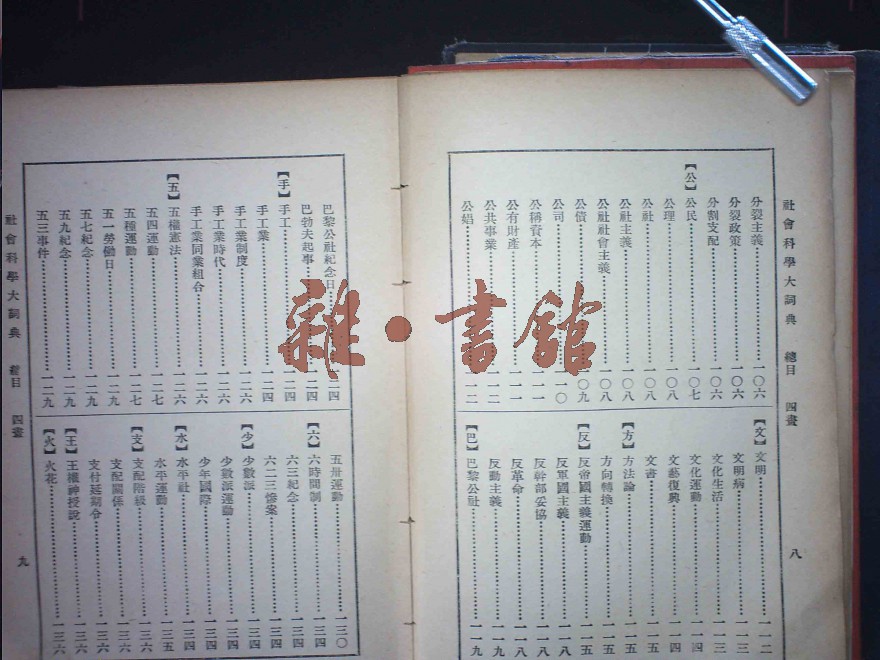 社會科學大詞典 總目 四畫 八
分裂主義 一〇六
分裂政策 一〇六
分割支配 一〇七
【公】
公民 一〇七
公理 一〇八
公社 一〇八
公社主義 一〇八
公社社會主義 一〇八
公債 一〇九
公司 一一〇
公稱資本 一一一
公有財產 一一一
公共事業 一一二
公娼 一一二
【文】
文明 一一二
文明病 一一三
文化生活 一一三
文化運動 一一四
文藝復興 一一四
文書 一一五
【方】
方法論 一一五
方向轉換 一一五
【反】
反帝國主義運動 一一五
反軍國主義 一一八
反幹部妥協 一一八
反革命 一一八
反動主義 一一九
【巴】
巴黎公社 一一九
巴黎公社紀念日
巴勃夫起事 二四
【手】
手工 二四
手工業 一二四
手工業制度 一二六
手工業時代 一二六
手工業同業組合 一二六
【五】
五權憲法 一二六
五四運動 一二七
五種運動 一二七
五一勞働日 一二九
五七紀念 一二九
五九紀念 一二九
五三事件 一二九
五卅運動 一三〇
【六】
六時間制 一三四
六三紀念 一三四
六二三慘案 一三四
【少】
少數派 一三四
少數派運動 一三四
少年國際 一三四
【水】
水平社 一三四
水平運動 一三五
【支】
支配階級 一三六
支配關係 一三六
支付延期令 一三六
【王】
王權神授說 一三六
【火】
火花 一三六
社會科學大詞典 總目 四畫 九
雜·書館